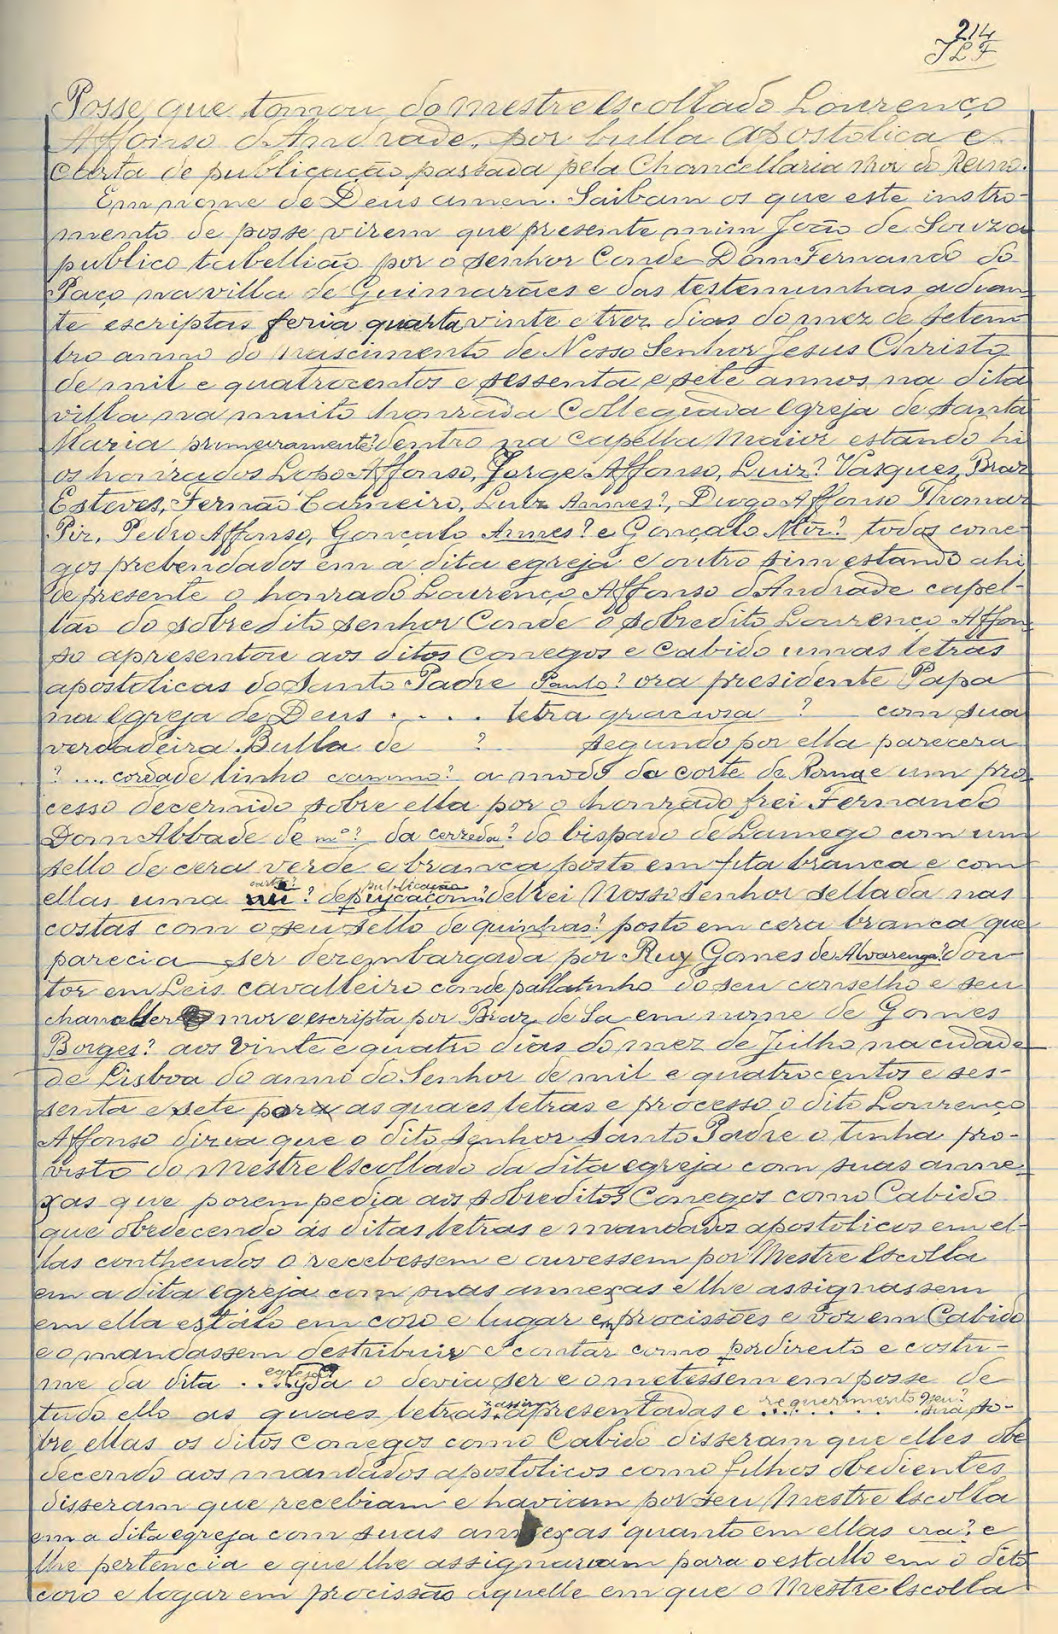 214
JLF
Posse que tomou do mestre escollado Lourenço
Affonso d'Andrade, por bulla apostolica e
carta de publicação passada pela Chancellaria Mor do Reino.
Em nome de Deus amen. Saibam os que este instro-
mento de posse virem que presente mim João de Souza
publico tabellião por o senhor Conde Dom Fernando do
Paço na villa de Guimarães e das testemunhas adian-
te escriptas feria quarta vinte e trez dias do mez de setem-
bro anno do nascimento de Nosso Senhor Jesus Christo
de mil e quatrocentos e sessenta e sete annos na dita
villa na muito honrada Collegiada egreja de Santa
Maria primeiramente? dentro na capella Maior estando hi
os honrados Lopo Affonso, Jorge Affonso, Luiz? Vasques, Braz
Esteves, Fernão Carneiro, Luiz Annes?, Diogo Affonso Thomaz
Pir, Pedro Affonso, Gonçalo Annes? e Gonçalo Mir? todos cone-
gos prebendados em a dita egreja e outro sim estando ahi
de presente o honrado Lourenço Affonso d'Andrade capel-
lão do sobredito senhor Conde o sobredito Lourenço Affon-
so apresentou aos ditos Conegos e Cabido umas letras
apostolicas do Santo Padre Paulo? ora presidente Papa
na Egreja de Deus . . . . letra graciosa ? com sua
verdadeira Bulla de ? segundo por ella parecera
? .... corda de linho canimo? a modo da corte de Roma e um pro-
cesso decernido sobre ella por o honrado frei Fernando
Dom Abbade de mº? da cerreda? do bispado de Lamego com um
sello de cera verde e branca posto em fita branca e com
ellas uma carta? de publicação d'el rei Nosso Senhor sellada nas
costas com o seu sello de quinhas? posto em cera branca que
parecia ser dezembargada por Ruy Gomes de Alvarenga? dou-
tor em Leis cavalleiro conde pallatinho do seu conselho e seu
chanceller mor e escripta por Braz de Sa em nome de Gomes
Borges? aos vinte e quatro dias do mez de Julho na cidade
de Lisboa do anno do Senhor de mil e quatrocentos e ses-
senta e sete por as quaes letras e processo o dito Lourenço
Affonso dizia que o dito senhor Santo Padre o tinha pro-
visto do Mestre Escollado da dita egreja com suas anne-
xas que porem pedia aos sobreditos Conegos como Cabido
que obedecendo ás ditas letras e mandados apostolicos em el-
las contheudos o recebessem e ouvessem por Mestre Escolla
em a dita egreja com suas annexas e lhe assignassem
em ella estálo em coro e lugar em procissões e voz em Cabido
e o mandassem destribuir e contar como por direito e costu-
me da dita egreja o devia ser e o metessem em posse de
tudo ello as quaes letras assim apresentadas e requerimento seu? so-
bre ellas os ditos Conegos como Cabido disseram que elles obe-
decendo aos mandados apostolicos como filhos obedientes
disseram que recebiam e haviam por seu Mestre Escolla
em a dita egreja com suas annexas quanto em ellas era? e
lhe pertencia e que lhe assignavam para o estallo em o dito
coro e logar em procissão aquelle em que o Mestre Escolla